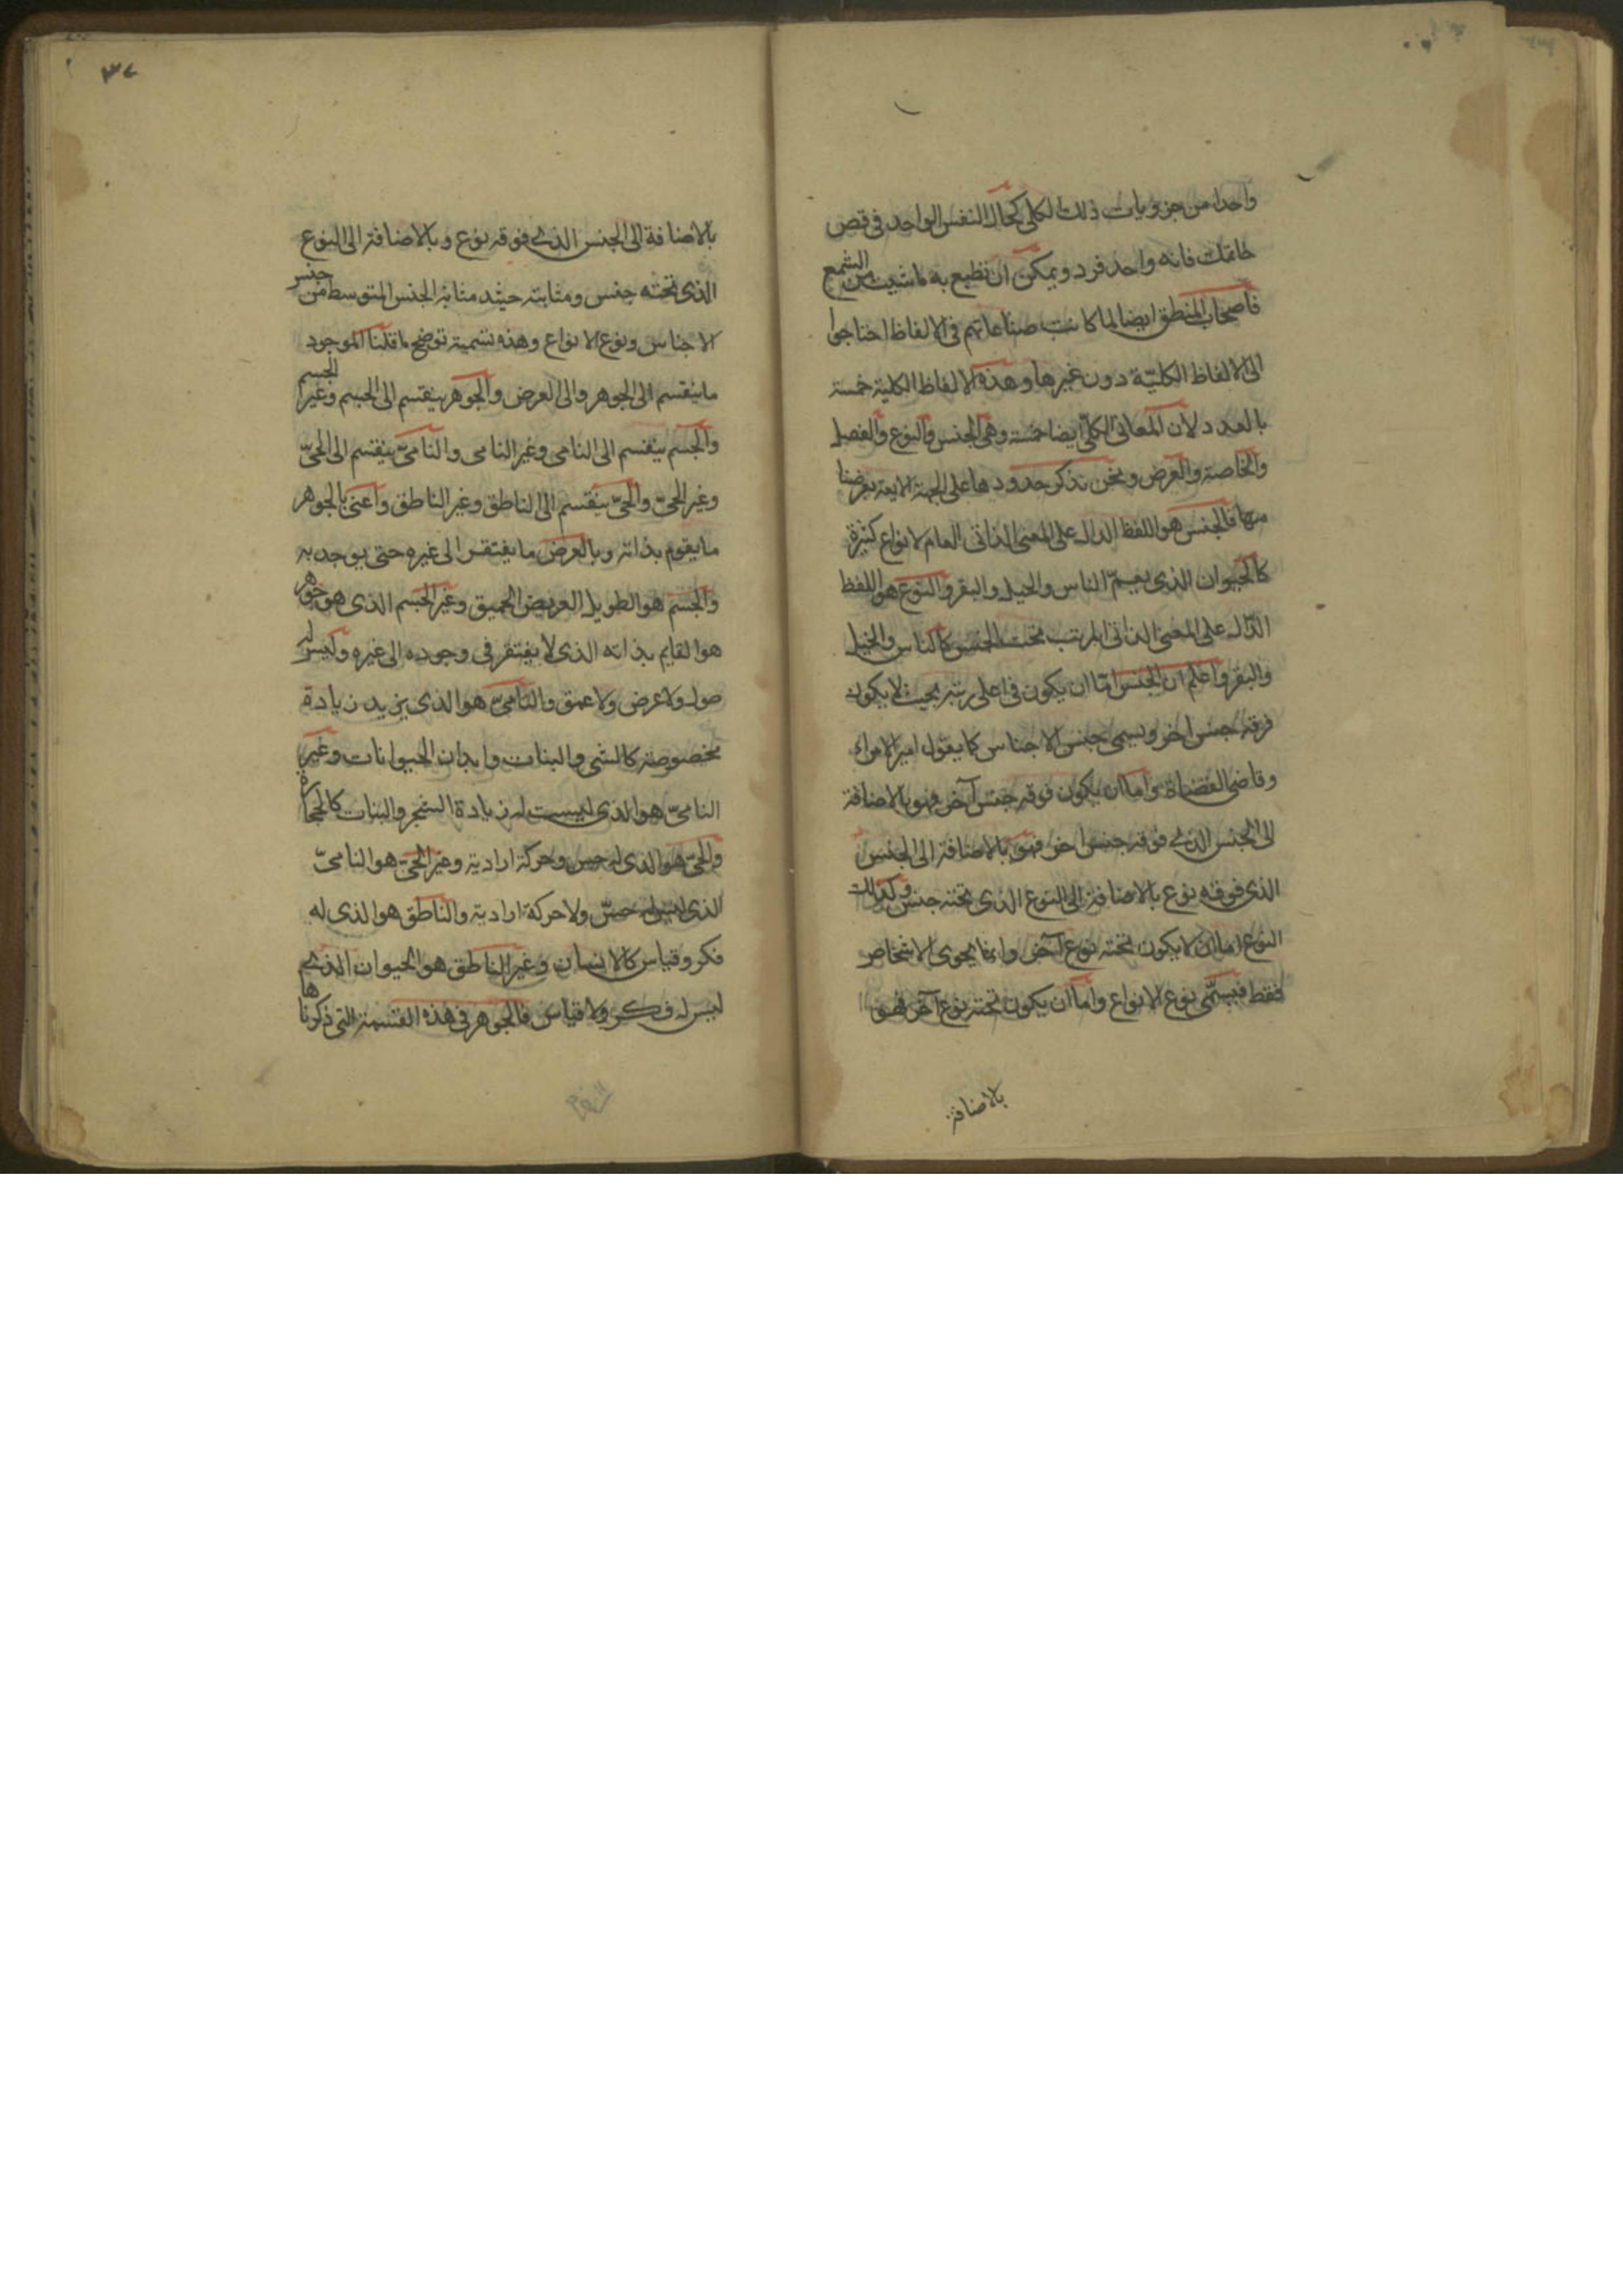 واحدا من جزويات ذلك الكلى كحال النفس الواحد فى فص
خاتمك فانه واحد فرد ويمكن ان تطبع به ما شيت من الشمع
فاصحاب المنطق ايضا لما كانت صناعاتهم فى الالفاظ احتاجوا
الى الالفاظ الكليّة دون غيرها وهذه الالفاظ الكلية خمسة
بالعدد لان المعانى الكلّى ايضا خمسة وهى الجنس والنوع والفصل
والخاصة والعرض ونحن نذكر حدودها على الجهة
منها فالجنس هو اللفظ الدال على المعنى الذاتى العام لانواع كثيرة
كالحيوان الذى يعمّ الناس والخيل والبقر والنوع هو اللفظ
الدّال على المعنى الذاتى المرتب تحت الجنس كالناس والخيل
والبقر واعلم ان الجنس امّا ان يكون فى اعلى رتبة بحيث لا يكون
فوقه جنس اخر ويسمى جنس الاجناس كما يقول امير الامراء
وقاضى القضاة واما ان يكون فوقه جنس آخر فهو بالاضافة
الى الجنس الذى فوقه جنس اخر فهو بالاضافة الى الجنس
الذى فوقه نوع بالاضافة الى النوع الذى تحته جنس وكذلك
النوع اما ان لا يكون تحته نوع آخر وانما يحوى الاشخاص
فقط فيسمّى نوع الانواع واما ان يكون تحته نوع آخر فهو
بالاضافة
٣٧
بالاضافة الى الجنس الذى فوقه نوع وبالاضافة الى النوع
الذى تحته جنس ومثابته حيئد مثابة الجنس المتوسط من جنس
الاجناس ونوع الانواع وهذه تسمية توضح ما قلنا الموجود
ما ينقسم الى الجوهر والى العرض والجوهر ينقسم الى الجسم وغير الجسم
والجسم ينقسم الى النامى وغير النامى والنامىّ ينقسم الى الحىّ
وغير الحىّ والحىّ ينقسم الى الناطق وغير الناطق واعنى بالجوهر
ما يقوم بذاته وبالعرض ما يفتقر الى غيره حتى يوجد به
والجسم هو الطويل العريض العميق وغير الجسم الذى هو جوهر
هو القايم بذاته الذى لا يفتقر فى وجوده الى غيره وليس له
طول ولا عرض ولا عمق والنامىّ هو الذى يزيد زيادة
مخصوصة كالشى والنبات وابدان الحيوانات وغير
النامىّ هو الذى ليست له زيادة الشجر والنبات كالحجارة
والحىّ هو الذى له حس وحركة ارادية وغير الحىّ هو النامىّ
الذى ليس له حسّ ولا حركة ارادية والناطق هو الذى له
فكر وقياس كالانسان وغير الناطق هو الحيوان الذى
ليس له فكر ولا قياس فالجوهر فى هذه القسمة التى ذكرناها